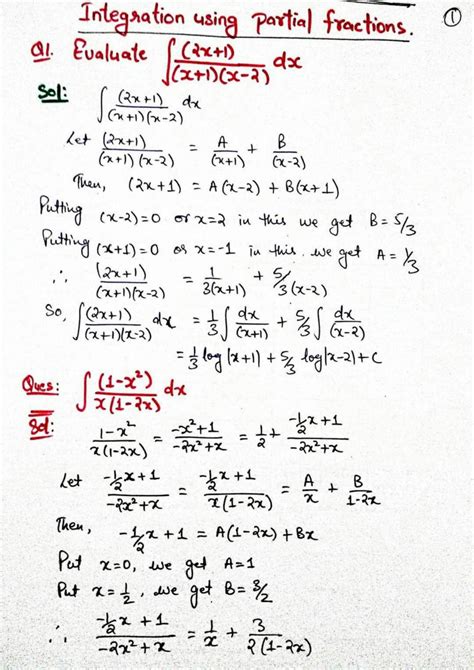 Integration using partial fractions. ①
Q1. Evaluate ∫ (2x+1)/((x+1)(x-2)) dx
Sol:
∫ (2x+1)/((x+1)(x-2)) dx
Let (2x+1)/((x+1)(x-2)) = A/(x+1) + B/(x-2)
Then, (2x+1) = A(x-2) + B(x+1)
Putting (x-2)=0 or x=2 in this we get B = 5/3
Putting (x+1)=0 or x=-1 in this we get A = 1/3
∴ (2x+1)/((x+1)(x-2)) = 1/(3(x+1)) + 5/(3(x-2))
So, ∫ (2x+1)/((x+1)(x-2)) dx = 1/3 ∫ dx/(x+1) + 5/3 ∫ dx/(x-2)
= 1/3 log|x+1| + 5/3 log|x-2| + C
Ques: ∫ (1-x²)/(x(1-2x)) dx
Sol:
(1-x²)/(x(1-2x)) = (-x²+1)/(-2x²+x) = 1/2 + (-1/2 x+1)/(-2x²+x)
Let (-1/2 x+1)/(-2x²+x) = (-1/2 x+1)/(x(1-2x)) = A/x + B/(1-2x)
Then, -1/2 x + 1 = A(1-2x) + Bx
Put x=0, we get A=1
Put x=1/2, we get B=3/2
∴ (-1/2 x + 1)/(-2x² + x) = 1/x + 3/(2(1-2x))